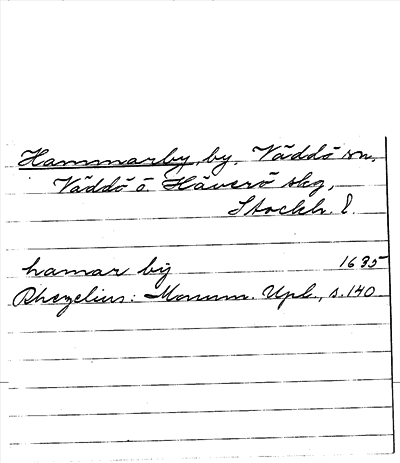 Hammarby, by, Väddö sn,
Väddö o Häverö skg,
Stockh. l.
hamar by 1635
Rhezelius: Monum. Upl., s. 140